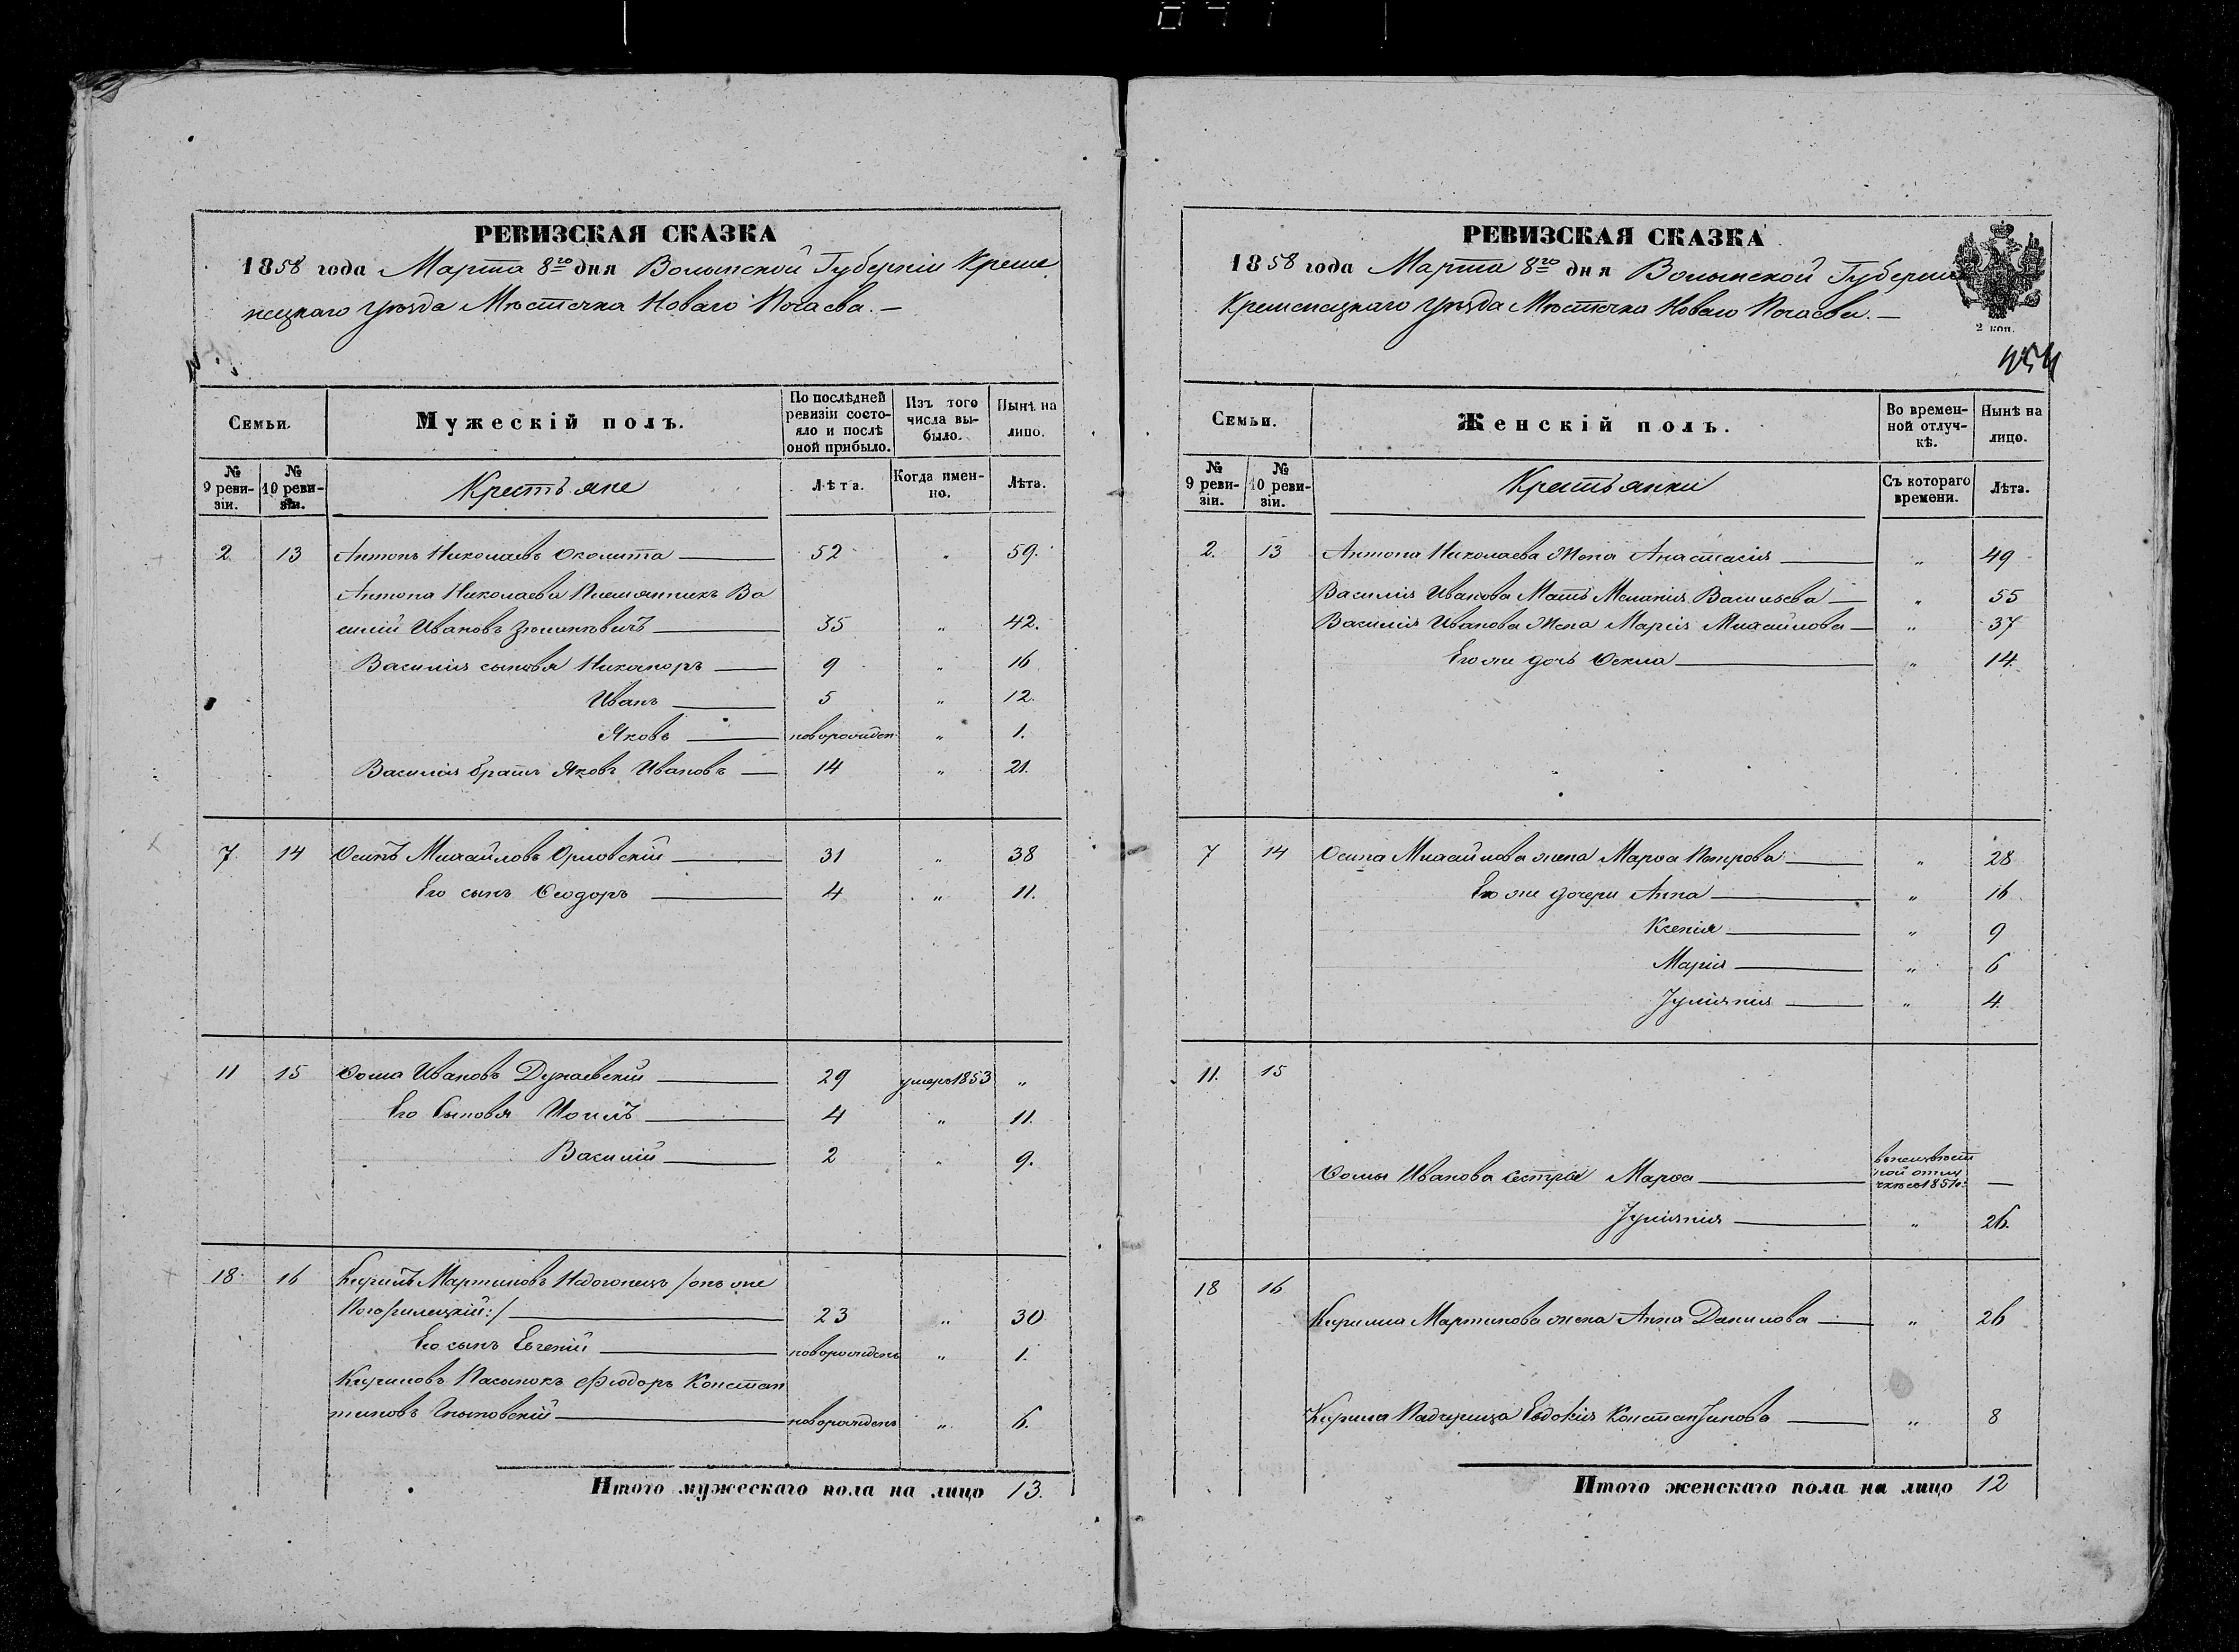 РЕВИЗСКАЯ СКАЗКА
1858 года Марта 8го дня Волынской Губерніи Креме
нецкаго Уѣзда Мѣстечка Новаго Почаева. —
Семьи.
Мужескій полъ.
По послѣдней ревизіи состояло и послѣ оной прибыло.
Изъ того числа выбыло.
Нынѣ на лицо.
№ 9 ревизіи.
№ 10 ревизіи.
Крестьяне
Лѣта.
Когда именно.
Лѣта.
2 13 Антонъ Николаевъ Околита 52 " 59.
Антона Николаева Племянникъ Ва
силій Ивановъ 35 " 42.
Василія сыновья Никаноръ 9 " 16
Иванъ 5 " 12.
Яковъ новорожден " 1.
Василія братъ Яковъ Ивановъ 14 " 21.
7 14 Осипъ Михайловъ Орловскій 31 " 38
Его сынъ Ѳеодоръ 4 " 11.
11 15 Ѳома Ивановъ Дунаевскій 29 умеръ 1853 "
Его Сыновья 4 " 11.
Василій 2 " 9.
18. 16 Кирилъ Мартиновъ /онъ же
23 " 30
Его сынъ Евгеній новорожденъ " 1.
Кириловъ Пасынокъ Фіодоръ Констан
тиновъ новорожденъ " 6.
Итого мужескаго пола на лицо 13.
РЕВИЗСКАЯ СКАЗКА
1858 года Марта 8го дня Волынской Губерніи
Кременецкаго Уѣзда Мѣстечка Новаго Почаева. —
2 коп.
Семьи.
Женскій полъ.
Во временной отлучкѣ.
Нынѣ на лицо.
№ 9 ревизіи.
№ 10 ревизіи.
Крестьянки
Съ котораго времени.
Лѣта.
2. 13 Антона Николаева Жена Анастасія " 49
Василія Иванова Мать Меланія Васильева " 55
Василія Иванова Жена Марія Михайлова " 37
Его же дочь " 14.
7 14 Осипа Михайлова жена Марѳа Петрова " 28
Его же дочери Анна " 16.
Ксенія " 9
Марія " 6
Іуліянія " 4.
11. 15
Ѳомы Иванова сестры Марѳа въ неизвѣст
ной отлу
чкѣ со 1851г: —
Іуліянія " 26.
18 16
Кирилла Мартинова жена Анна Данилова " 26
Кирила Падчерица Евдокія Константинова " 8
Итого женскаго пола на лицо 12